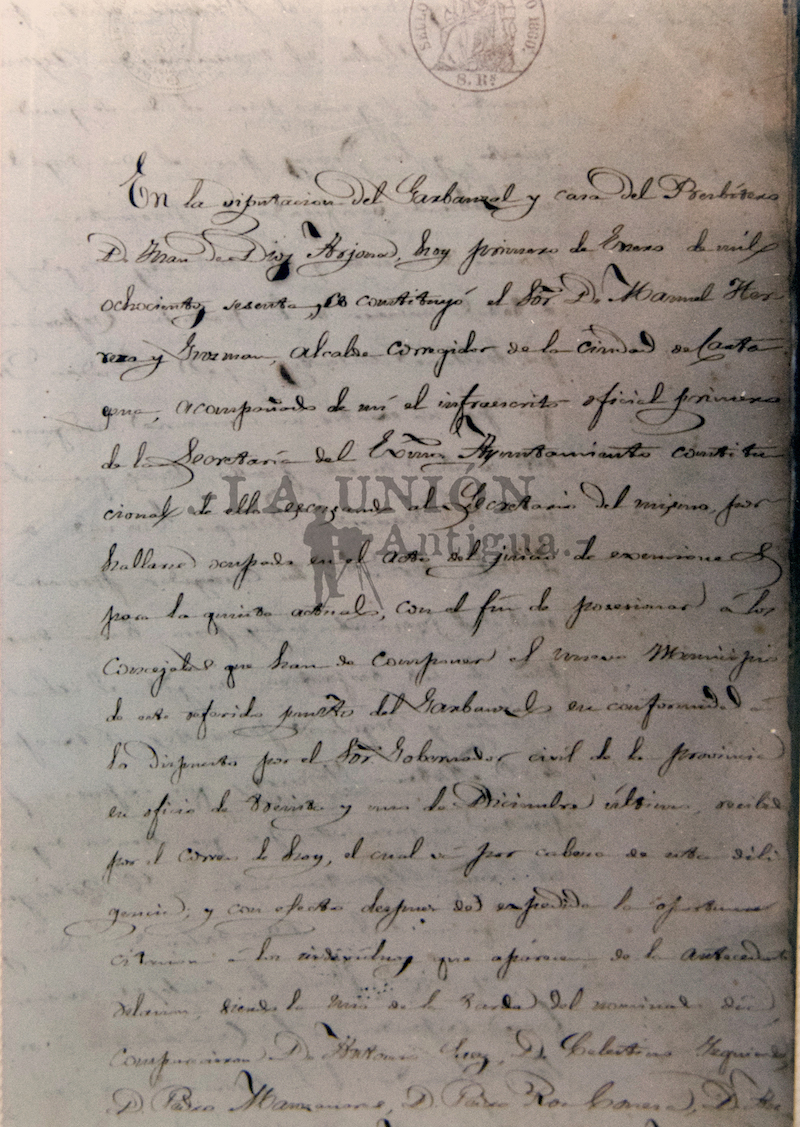 SELLO
O 1860.
S. Rs
En la diputacion del Garbanzal y casa del Presbitero
D. Juan de Dios Arjona, hoy primero de Enero de mil
ochocientos sesenta, se constituyó el Sor. D. Manuel Her
rera y Guzman, alcalde corregidor de la ciudad de Carta
gena, acompañado de mi el infraescrito oficial primero
de la Secretaria del Excmo. Ayuntamiento constitu
cional de ella escusando al Secretario del mismo, por
hallarse ocupado en el acto del juicio de exenciones
para la quinta actual, con el fin de posesionar á los
Concejales que han de componer el nuevo Municipio
de este referido punto del Garbanzal en conformidad á
lo dispuesto por el Sor. Gobernador civil de la provincia
en oficio de treinta y uno de Diciembre último, recibido
por el correo de hoy, el cual vá por cabeza de esta dili
gencia, y con efecto despues de expedida la oportuna
citacion á los individuos que aparecen de la antecedente
relacion, siendo la una de la tarde del nominado dia,
comparecieron D. Antonio D. Celestino
D. Pedro Manzanares, D. Pedro Ros Conesa, D.
LA UNIÓN
Antigua.